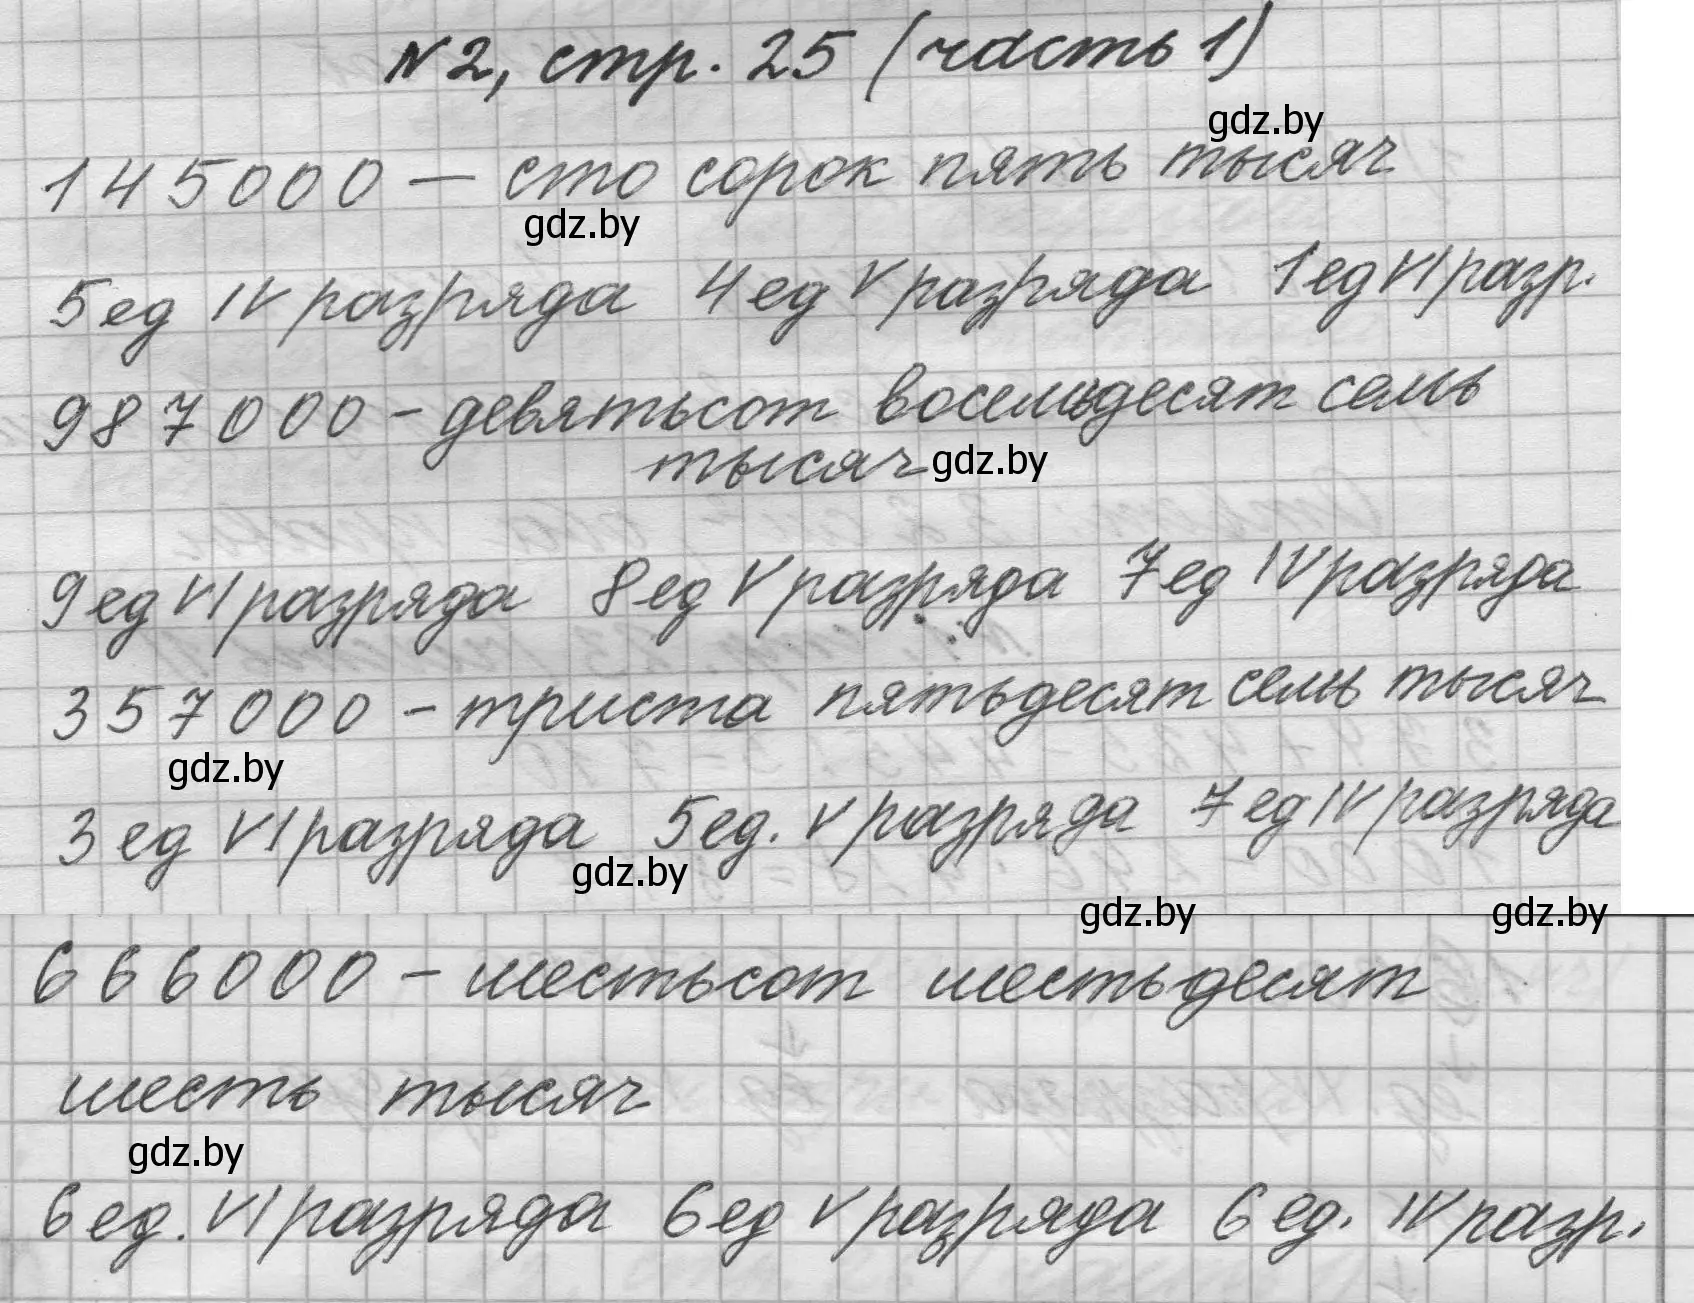 N2, стр. 25 (часть 1)
gdz.by
145000 — сто сорок пять тысяч
gdz.by
5ед IV разряда 4ед V разряда 1ед VI разр.
987000 - девятьсот восемьдесят семь
тысяч gdz.by
9ед VI разряда 8ед V разряда 7ед IV разряда
357000 - триста пятьдесят семь тысяч
gdz.by
3ед VI разряда 5ед. V разряда 7ед IV разряда
gdz.by
gdz.by gdz.by
666000 - шестьсот шестьдесят
шесть тысяч
gdz.by
6ед. VI разряда 6ед V разряда 6ед. IV разр.